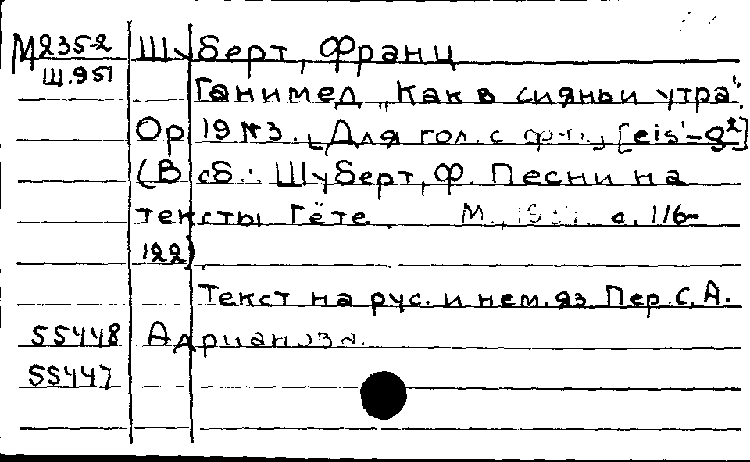 М2352 Шуберт, Франц
Ш.951
Ганимед „Как в сияньи утра".
Ор 19 №3. [Для гол. с фп.] [eis¹-g²]
(В сб.: Шуберт, Ф. Песни на
тексты Гёте М., с. 116-
122).
Текст на рус. и нем. яз. Пер. С. А.
55448 Адрианова.
55447